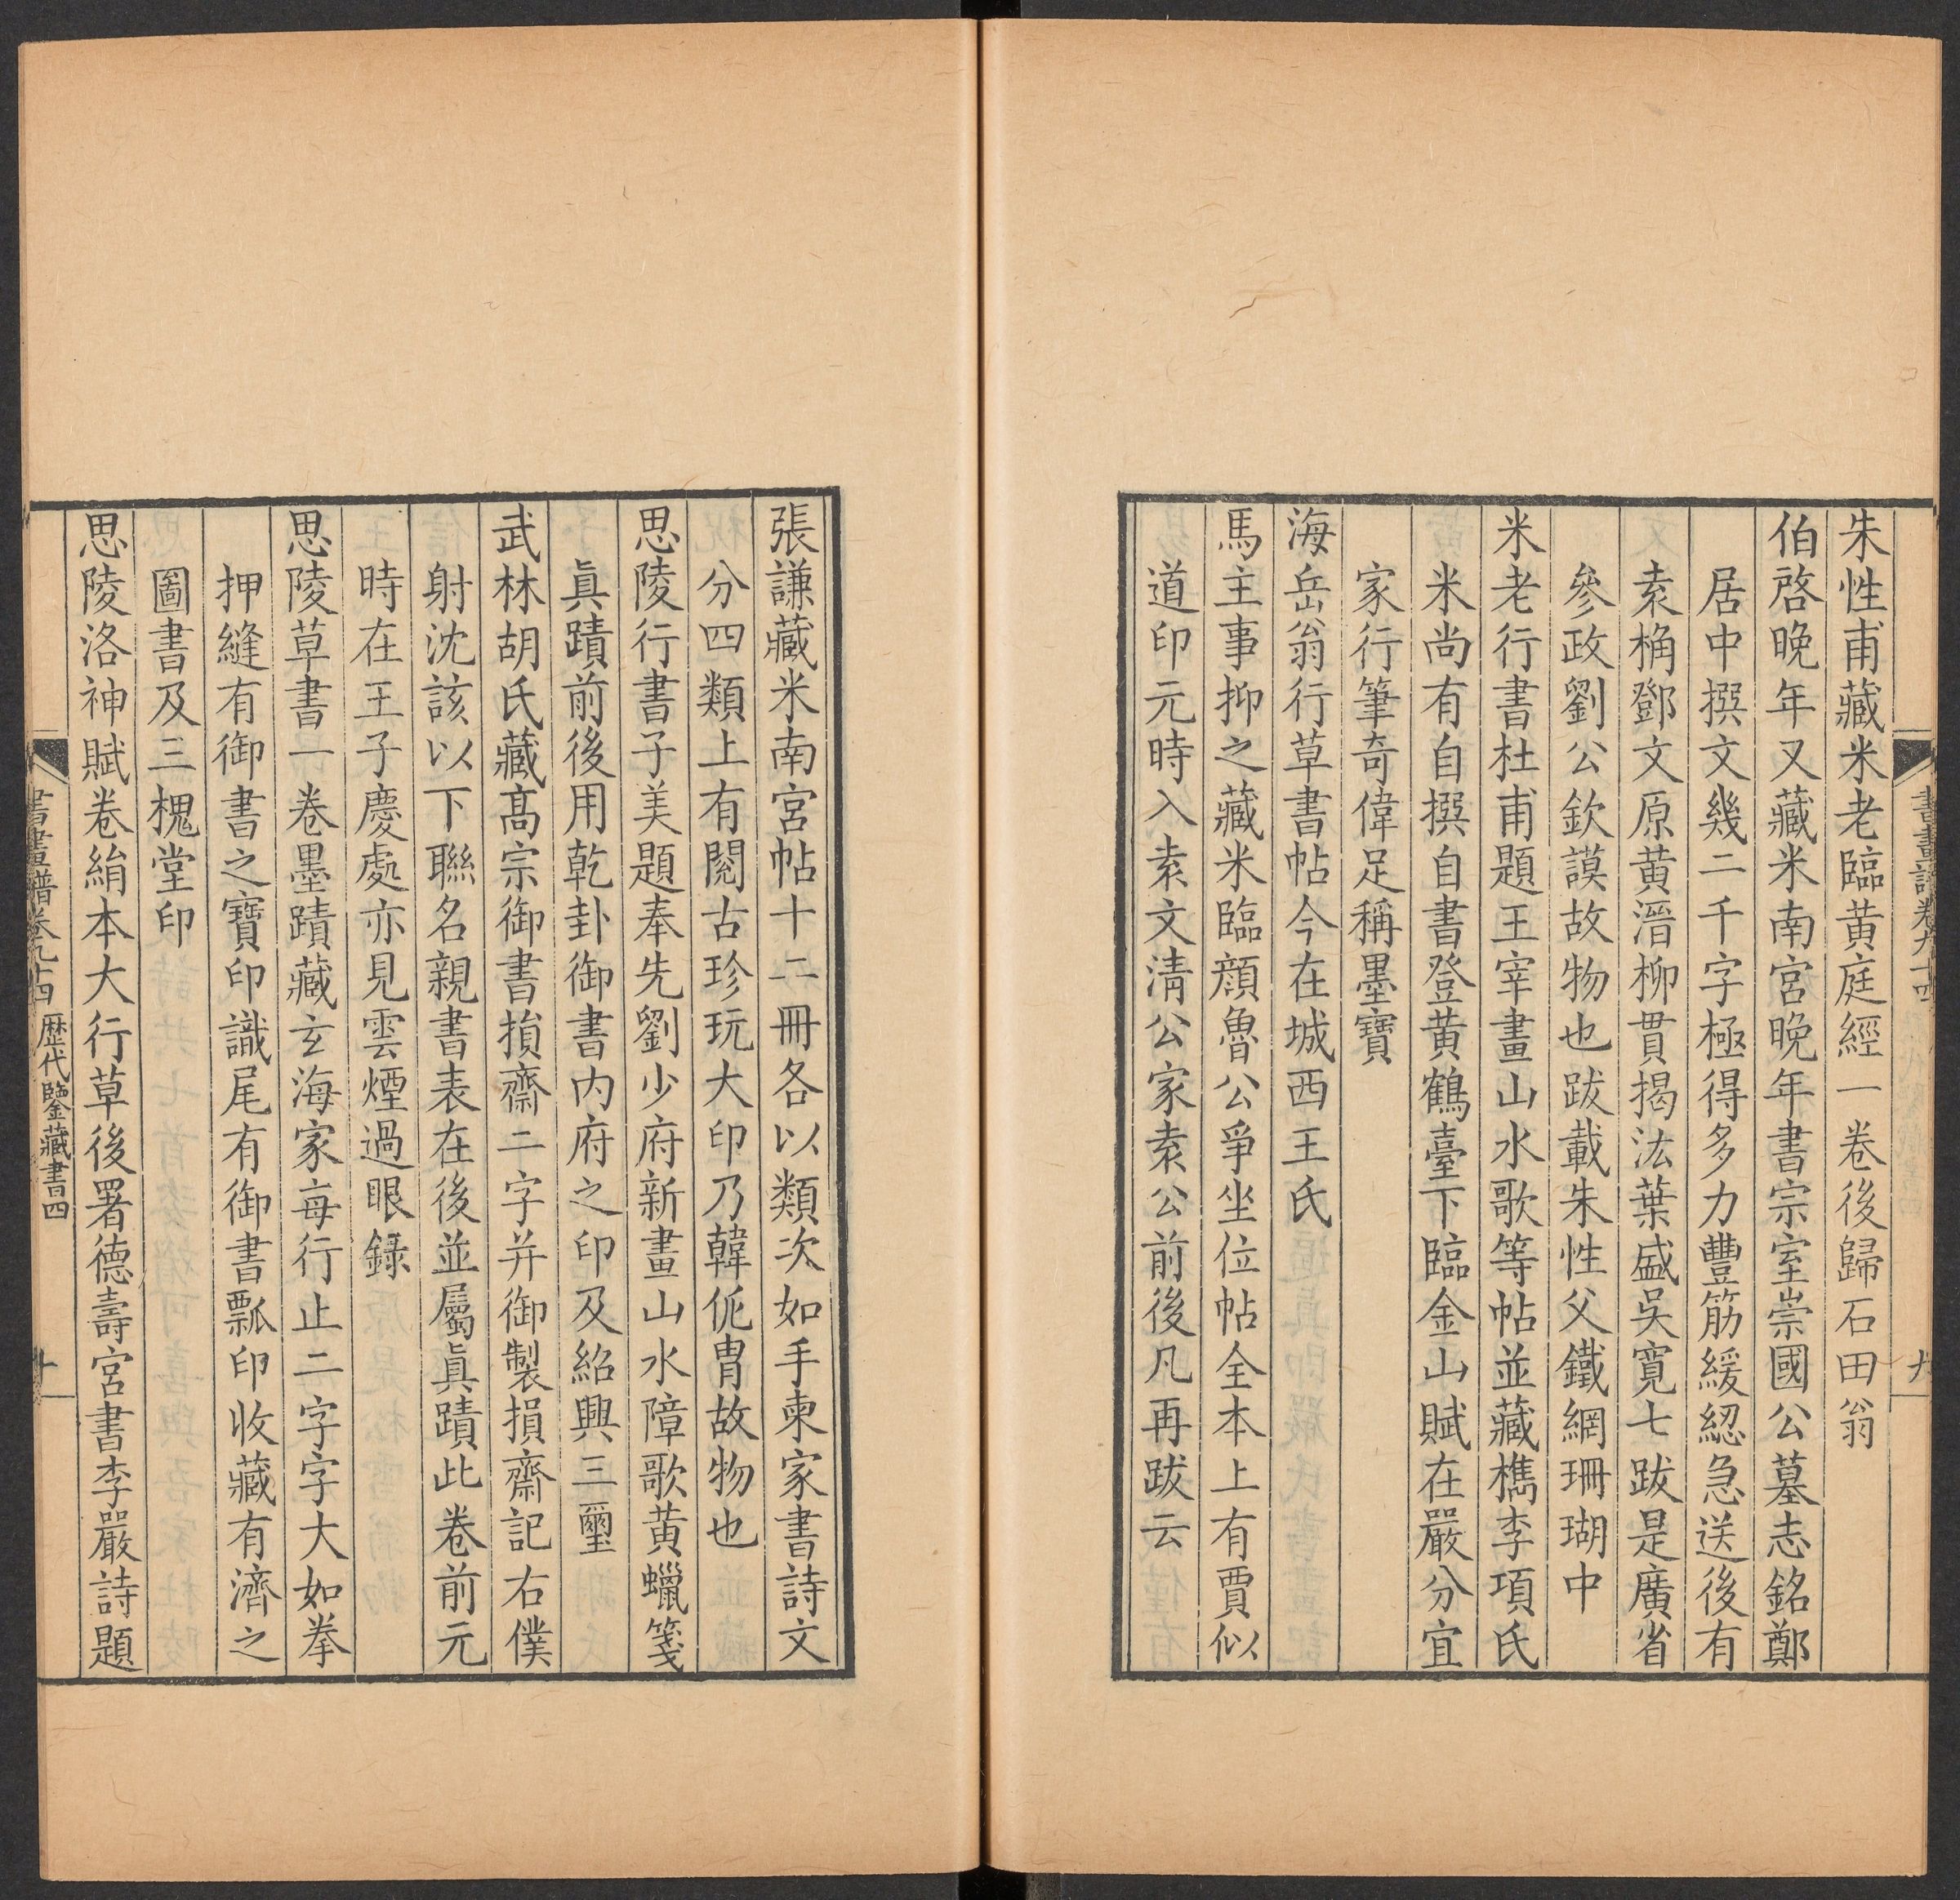 書畫譜卷九十四
九
朱性甫藏米老臨黄庭經一卷後歸石田翁
伯啓晚年又藏米南宮晚年書宗室崇國公墓志銘鄭
居中撰文幾二千字極得多力豐筋緩緫急送後有
袁桷鄧文原黄溍柳貫揭汯葉盛吳寬七跋是廣省
參政劉公欽謨故物也跋載朱性父鐵網珊瑚中
米老行書杜甫題王宰畫山水歌等帖並藏檇李項氏
米尚有自撰自書登黄鶴臺下臨金山賦在嚴分宜
家行筆奇偉足稱墨寶
海岳翁行草書帖今在城西王氏
馬主事抑之藏米臨顔魯公爭坐位帖全本上有賈似
道印元時入袁文淸公家袁公前後凡再跋云
張謙藏米南宮帖十二冊各以類次如手柬家書詩文
分四類上有閱古珍玩大印乃韓侂胄故物也
思陵行書子美題奉先劉少府新畫山水障歌黄蠟箋
眞蹟前後用乾卦御書内府之印及紹興三璽
武林胡氏藏髙宗御書損齋二字并御製損齋記右僕
射沈該以下聯名親書表在後並屬眞蹟此卷前元
時在王子慶處亦見雲煙過眼錄
思陵草書一卷墨蹟藏玄海家每行止二字字大如拳
押縫有御書之寶印識尾有御書瓢印收藏有濟之
圖書及三槐堂印
思陵洛神賦卷絹本大行草後署德壽宮書李嚴詩題
書畫譜卷九十四 歴代鑒藏書四
十